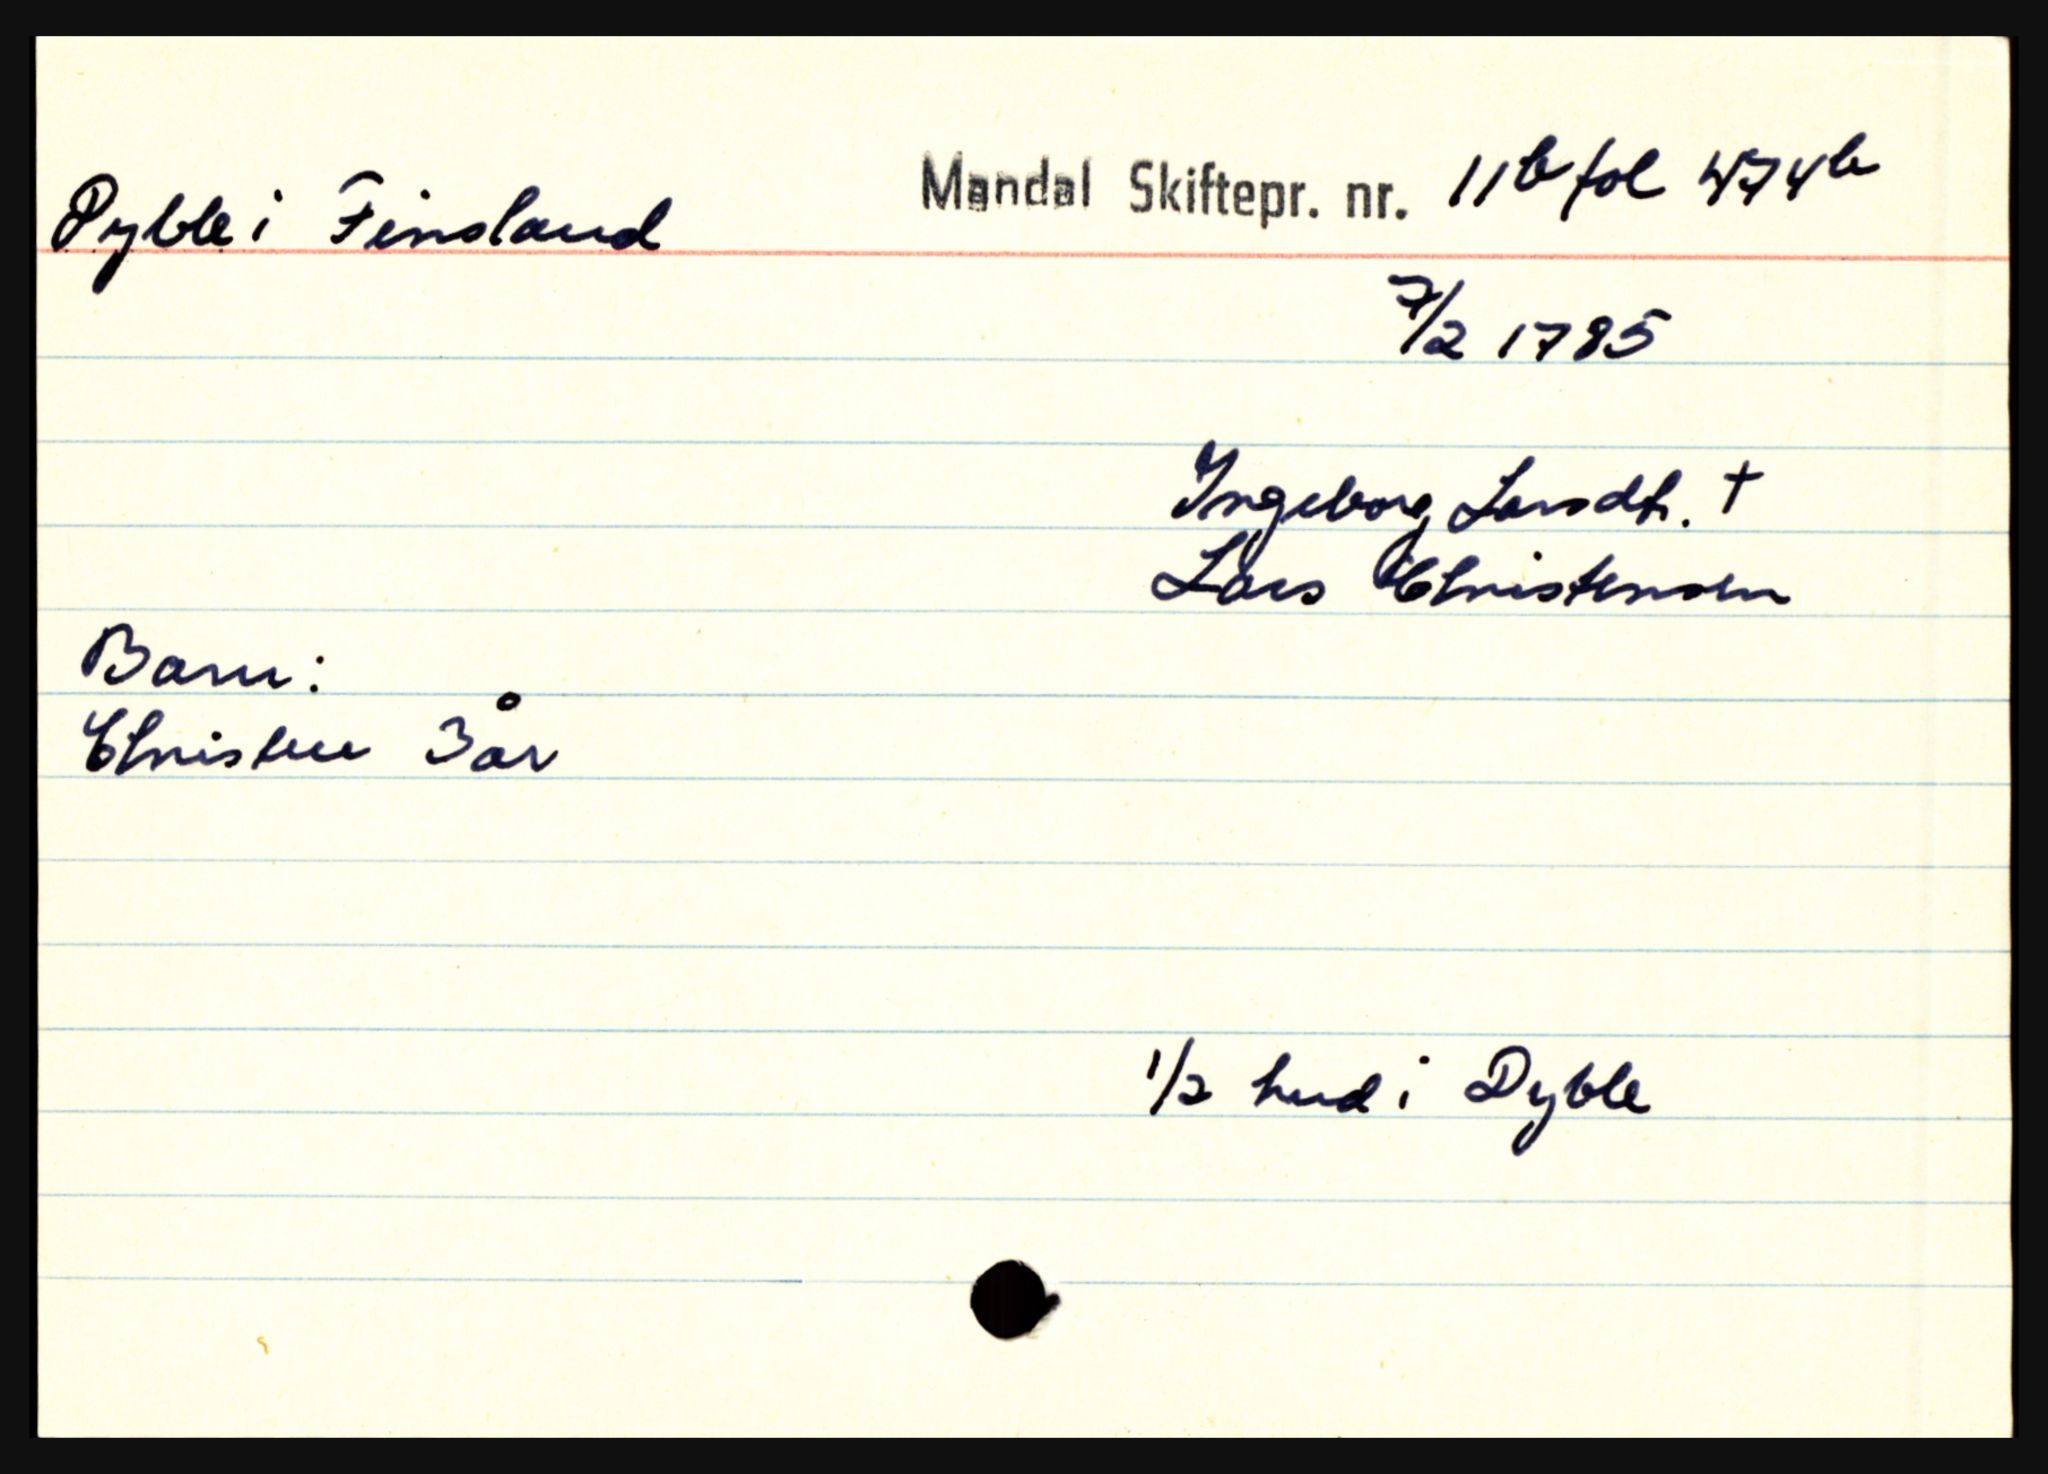 Dyble i Finsland
Mandal Skiftepr. nr. 11b fol 474b
7/2 1785
Ingeborg Larsdtr. †
Lars Christensen
Barn:
Christen 3 år
1/2 hud i Dyble